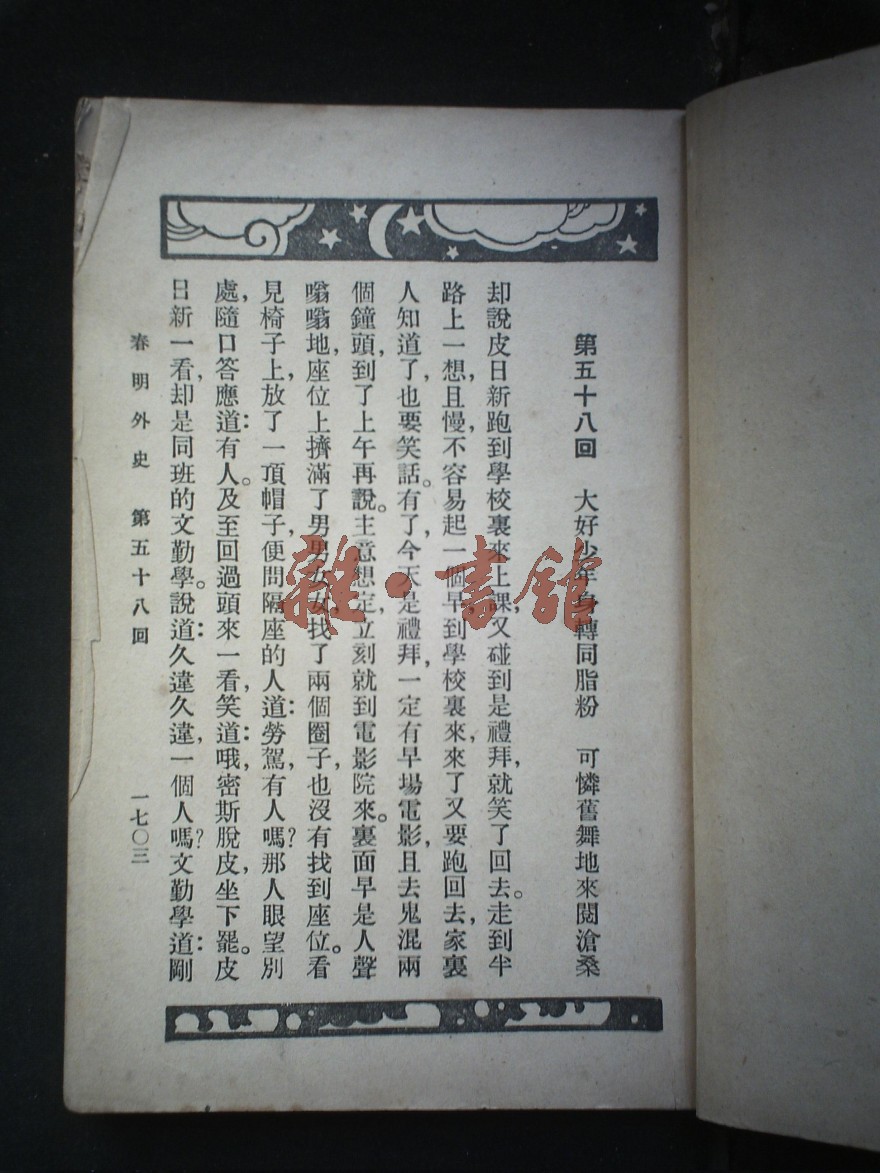 第五十八回　大好少年身轉同脂粉　可憐舊舞地來閱滄桑
却說皮日新跑到學校裏來上課，又碰到是禮拜，就笑了回去。走到半
路上一想，且慢，不容易起一個早，到學校裏來，來了又要跑回去，家裏
人知道了，也要笑話。有了，今天是禮拜，一定有早場電影，且去鬼混兩
個鐘頭，到了上午再說。主意想定，立刻就到電影院來。裏面早是人聲
嗡嗡地，座位上擠滿了男男女女，找了兩個圈子，也沒有找到座位。看
見椅子上，放了一頂帽子，便問隔座的人道：勞駕，有人嗎？那人眼望別
處，隨口答應道：有人。及至回過頭來一看，笑道：哦，密斯脫皮，坐下罷。皮
日新一看，却是同班的文勤學。說道：久違久違，一個人嗎？文勤學道：剛
春明外史　第五十八回　一七〇三
雜·書館